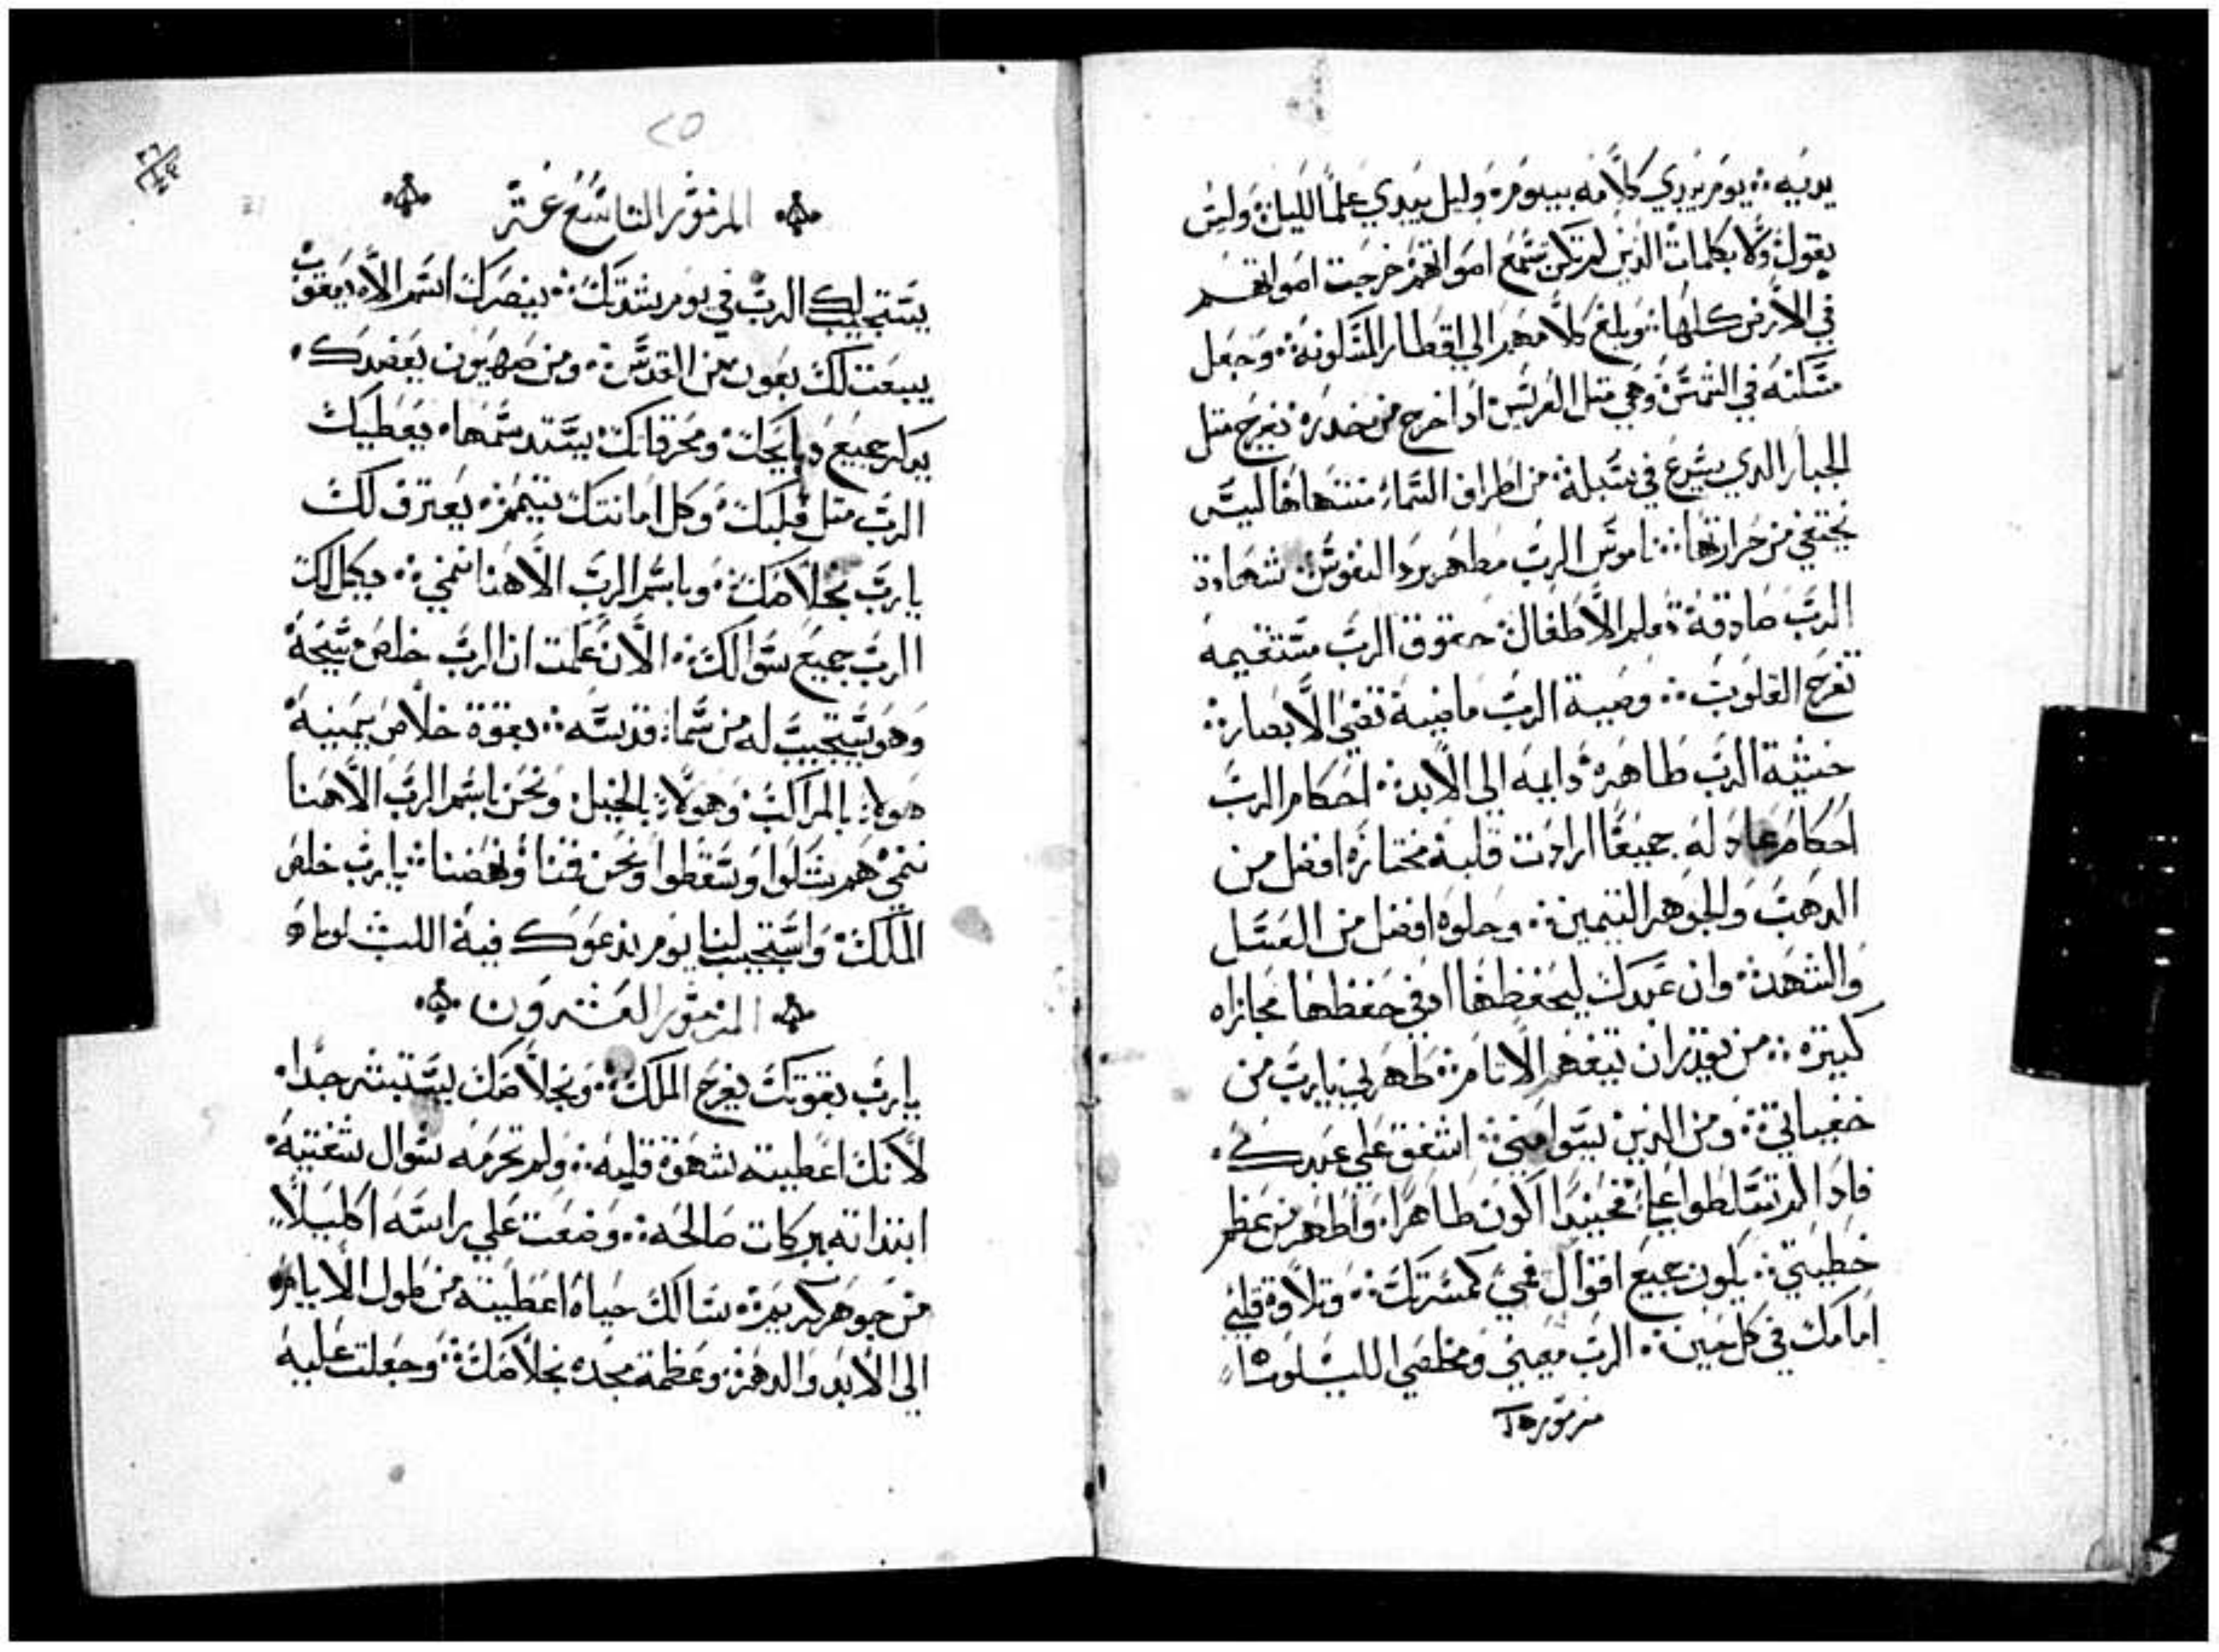 يديه ؞ يوم يبدي كلامه بيوم ؞ وليل يبدي علما لليله ؞ وليس
يقول ولا بكلمات الذين لم تكن تسمع اصواتهم خرجت اصواتهم
في الارض كلها ؞ وبلغ كلامهم الي اقطار المسكونه ؞ وجعل
مسكنه في الشمس وهي متل العريس ادا خرج من خدره ؞ يفرح متل
الجبار الدي يسرع في سبله ؞ من اطراف السماء منتهاها ليس
يختفي من حرارتها ؞ ناموس الرب مطهر يرد النفوس ؞ شهادة
الرب صادقة تعلم الاطفال ؞ حقوق الرب مستقيمه
تفرح القلوب ؞ وصية الرب ماضية تضي الابصار ؞
خشية الرب طاهره دايمه الي الابد ؞ احكام الرب
احكام عادله جميعا ارادت قلبه مختاره افضل من
الدهب والجوهر التمين ؞ وحلوه افضل من العسل
والشهد ؞ وان عبدك ليحفظها ادفي حفظها مجازاه
كبيره ؞ من يقدر ان يتفهم الاتام ؞ طهرني يارب من
خفياتي ؞ ومن الدين ليسوا مني ؞ اشفق علي عبدك ؞
فادا لم تتسلطوا علي ؞ فحينيدا اكون طاهرا ؞ واطهر من عظم
خطيتي ؞ يكون جميع اقوال فمي كمسرتك ؞ وتلاوة قلبي
امامك في كل حين ؞ الرب معيني ومخلصي الليلوياء
مزموره
٢٥
المزمور التاسع عشر
يستجيب لك الرب في يوم شدتك ؞ ينصرك اسم الاه يعقوب
يبعت لك بعون من القدس ؞ ومن صهيون يعضدك ؞
يدكر جميع دبايحك ومحرقاتك يستدسمها ؞ يعطيك
الرب متل قلبك ؞ وكل امانتك يتمم ؞ يعترف لك
يارب بخلاصك ؞ وباسم الرب الاهنا ننمي ؞ يكمل لك
الرب جميع سوالك ؞ الان علمت ان الرب خلص مسيحه
وهو يستجيب له من سماء قدسه ؞ بقوة خلاص يمينه
هولاء بالمراكب وهولاء بالخيل ونحن باسم الرب الاهنا
ننمي هم شكلوا وسقطوا ونحن قمنا ونهضنا ؞ يارب خلص
الملك ؞ واستجيب لنا يوم ندعوك فيه
المزمور العشرون
يارب بقوتك يفرح الملك ؞ وبخلاصك يستبشر جدا ؞
لانك اعطيته شهوة قلبه ؞ ولم تحرمه سوال شفتيه ؞
ابتداته ببركات صالحه ؞ وضعت علي راسه اكليلا
من جوهر كريم ؞ سالك حياه اعطيته من طول الايام
الي الابد والدهر ؞ وعظمة مجده بخلاصك ؞ وجعلت عليه